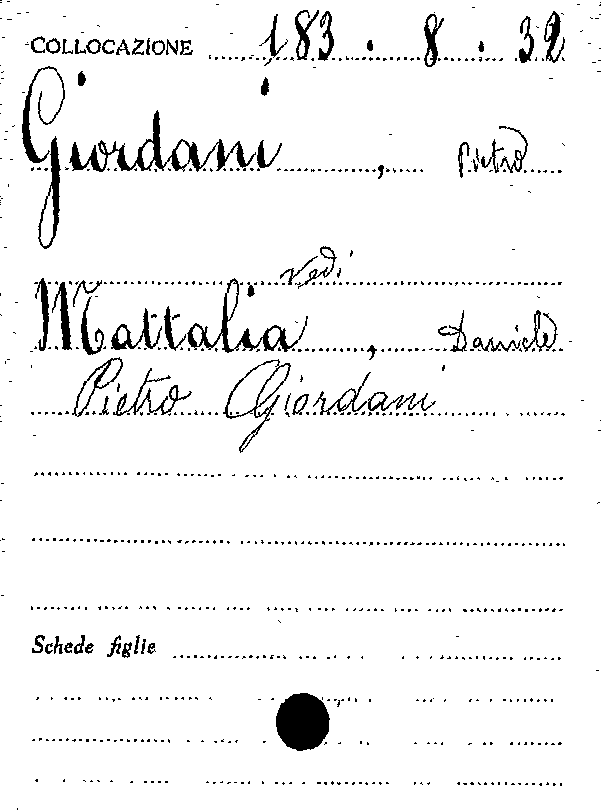 COLLOCAZIONE 183.8.32
Giordani, Pietro
vedi
Mattalia, Daniele
Pietro Giordani
Schede figlie